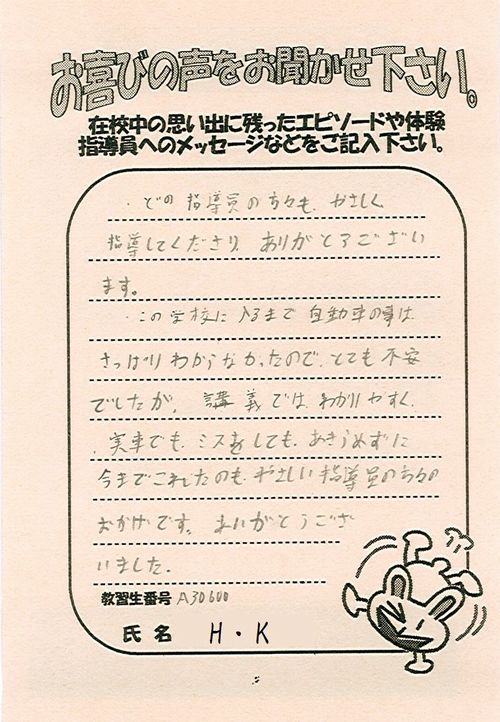 お喜びの声をお聞かせ下さい。
在校中の思い出に残ったエピソードや体験
指導員へのメッセージなどをご記入下さい。
・どの指導員の方々も、やさしく
指導してくださり、ありがとうござい
ます。
・この学校に入るまで自動車の事は
さっぱりわからなかったので、とても不安
でしたが、講義ではわかりやすく、
実車でも、ミスをしても、あきらめずに
今までこれたのも、やさしい指導員の方々の
おかげです。ありがとうござ
いました。
教習生番号 A30600
氏名 H・K